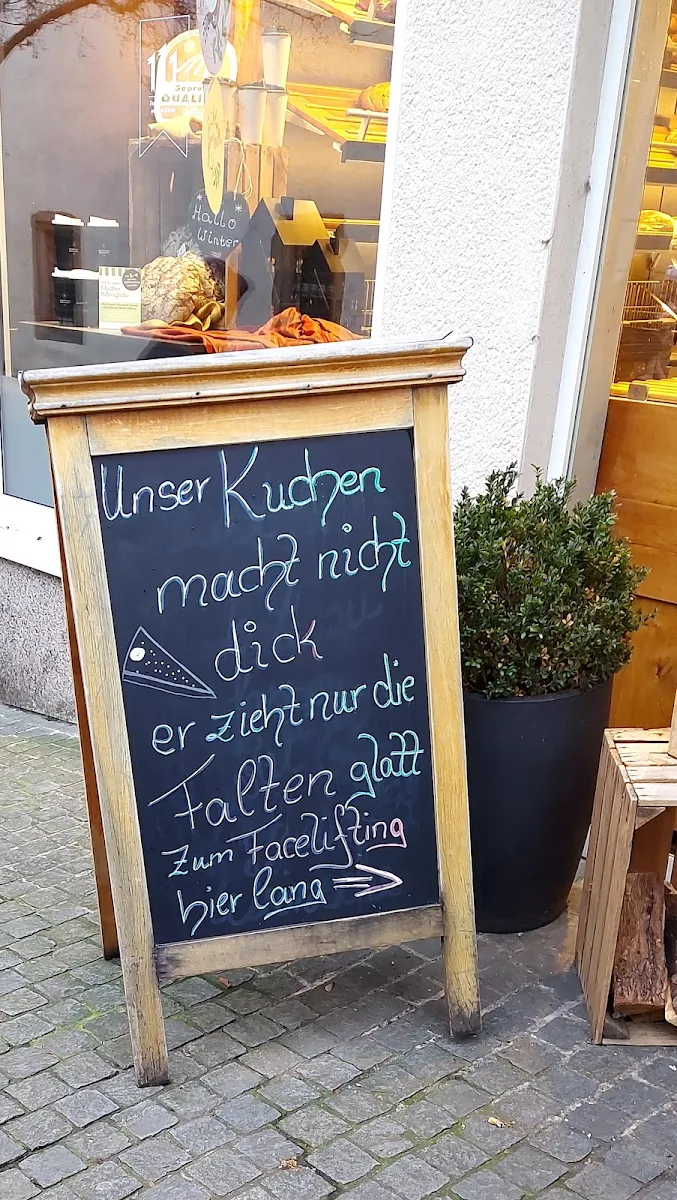 QUALI
Hallo
Winter
Unser Kuchen
macht nicht
dick
er zieht nur die
Falten glatt
zum Facelifting
hier lang